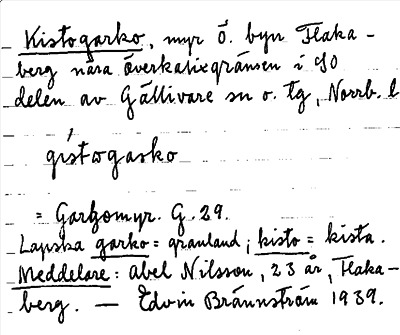 Kistogarko, myr Ö. byn Flaka-
berg nära överkalixgränsen i SO
delen av Gällivare sn o. tg, Norrb. l
gístogarko
= Gargomyr. G. 29.
Lapska garko = granland; kisto = kista.
Meddelare: Abel Nilsson, 23 år, Flaka-
berg. — Edvin Brännström 1939.